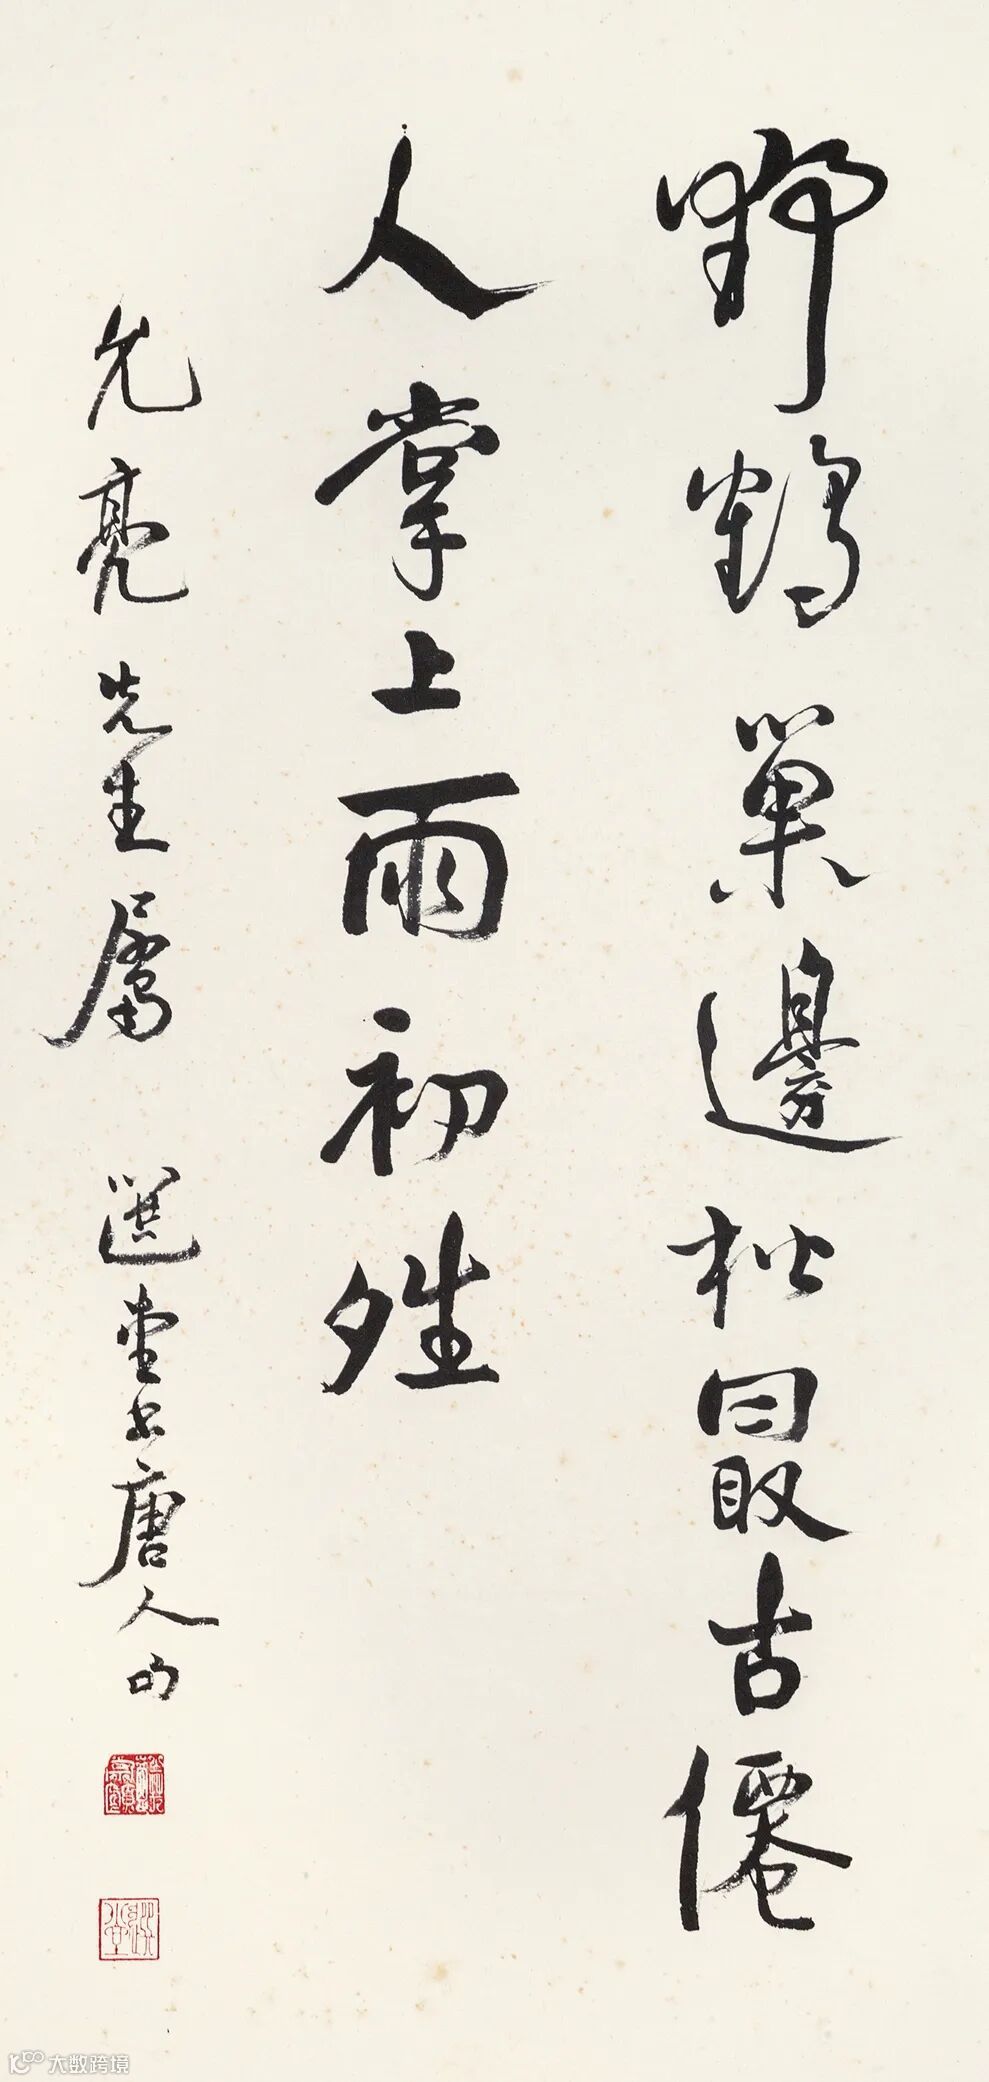 野鶴巢邊松最古僊
人掌上雨初殅
允亮先生屬 選堂書唐人句
選堂
大数跨境